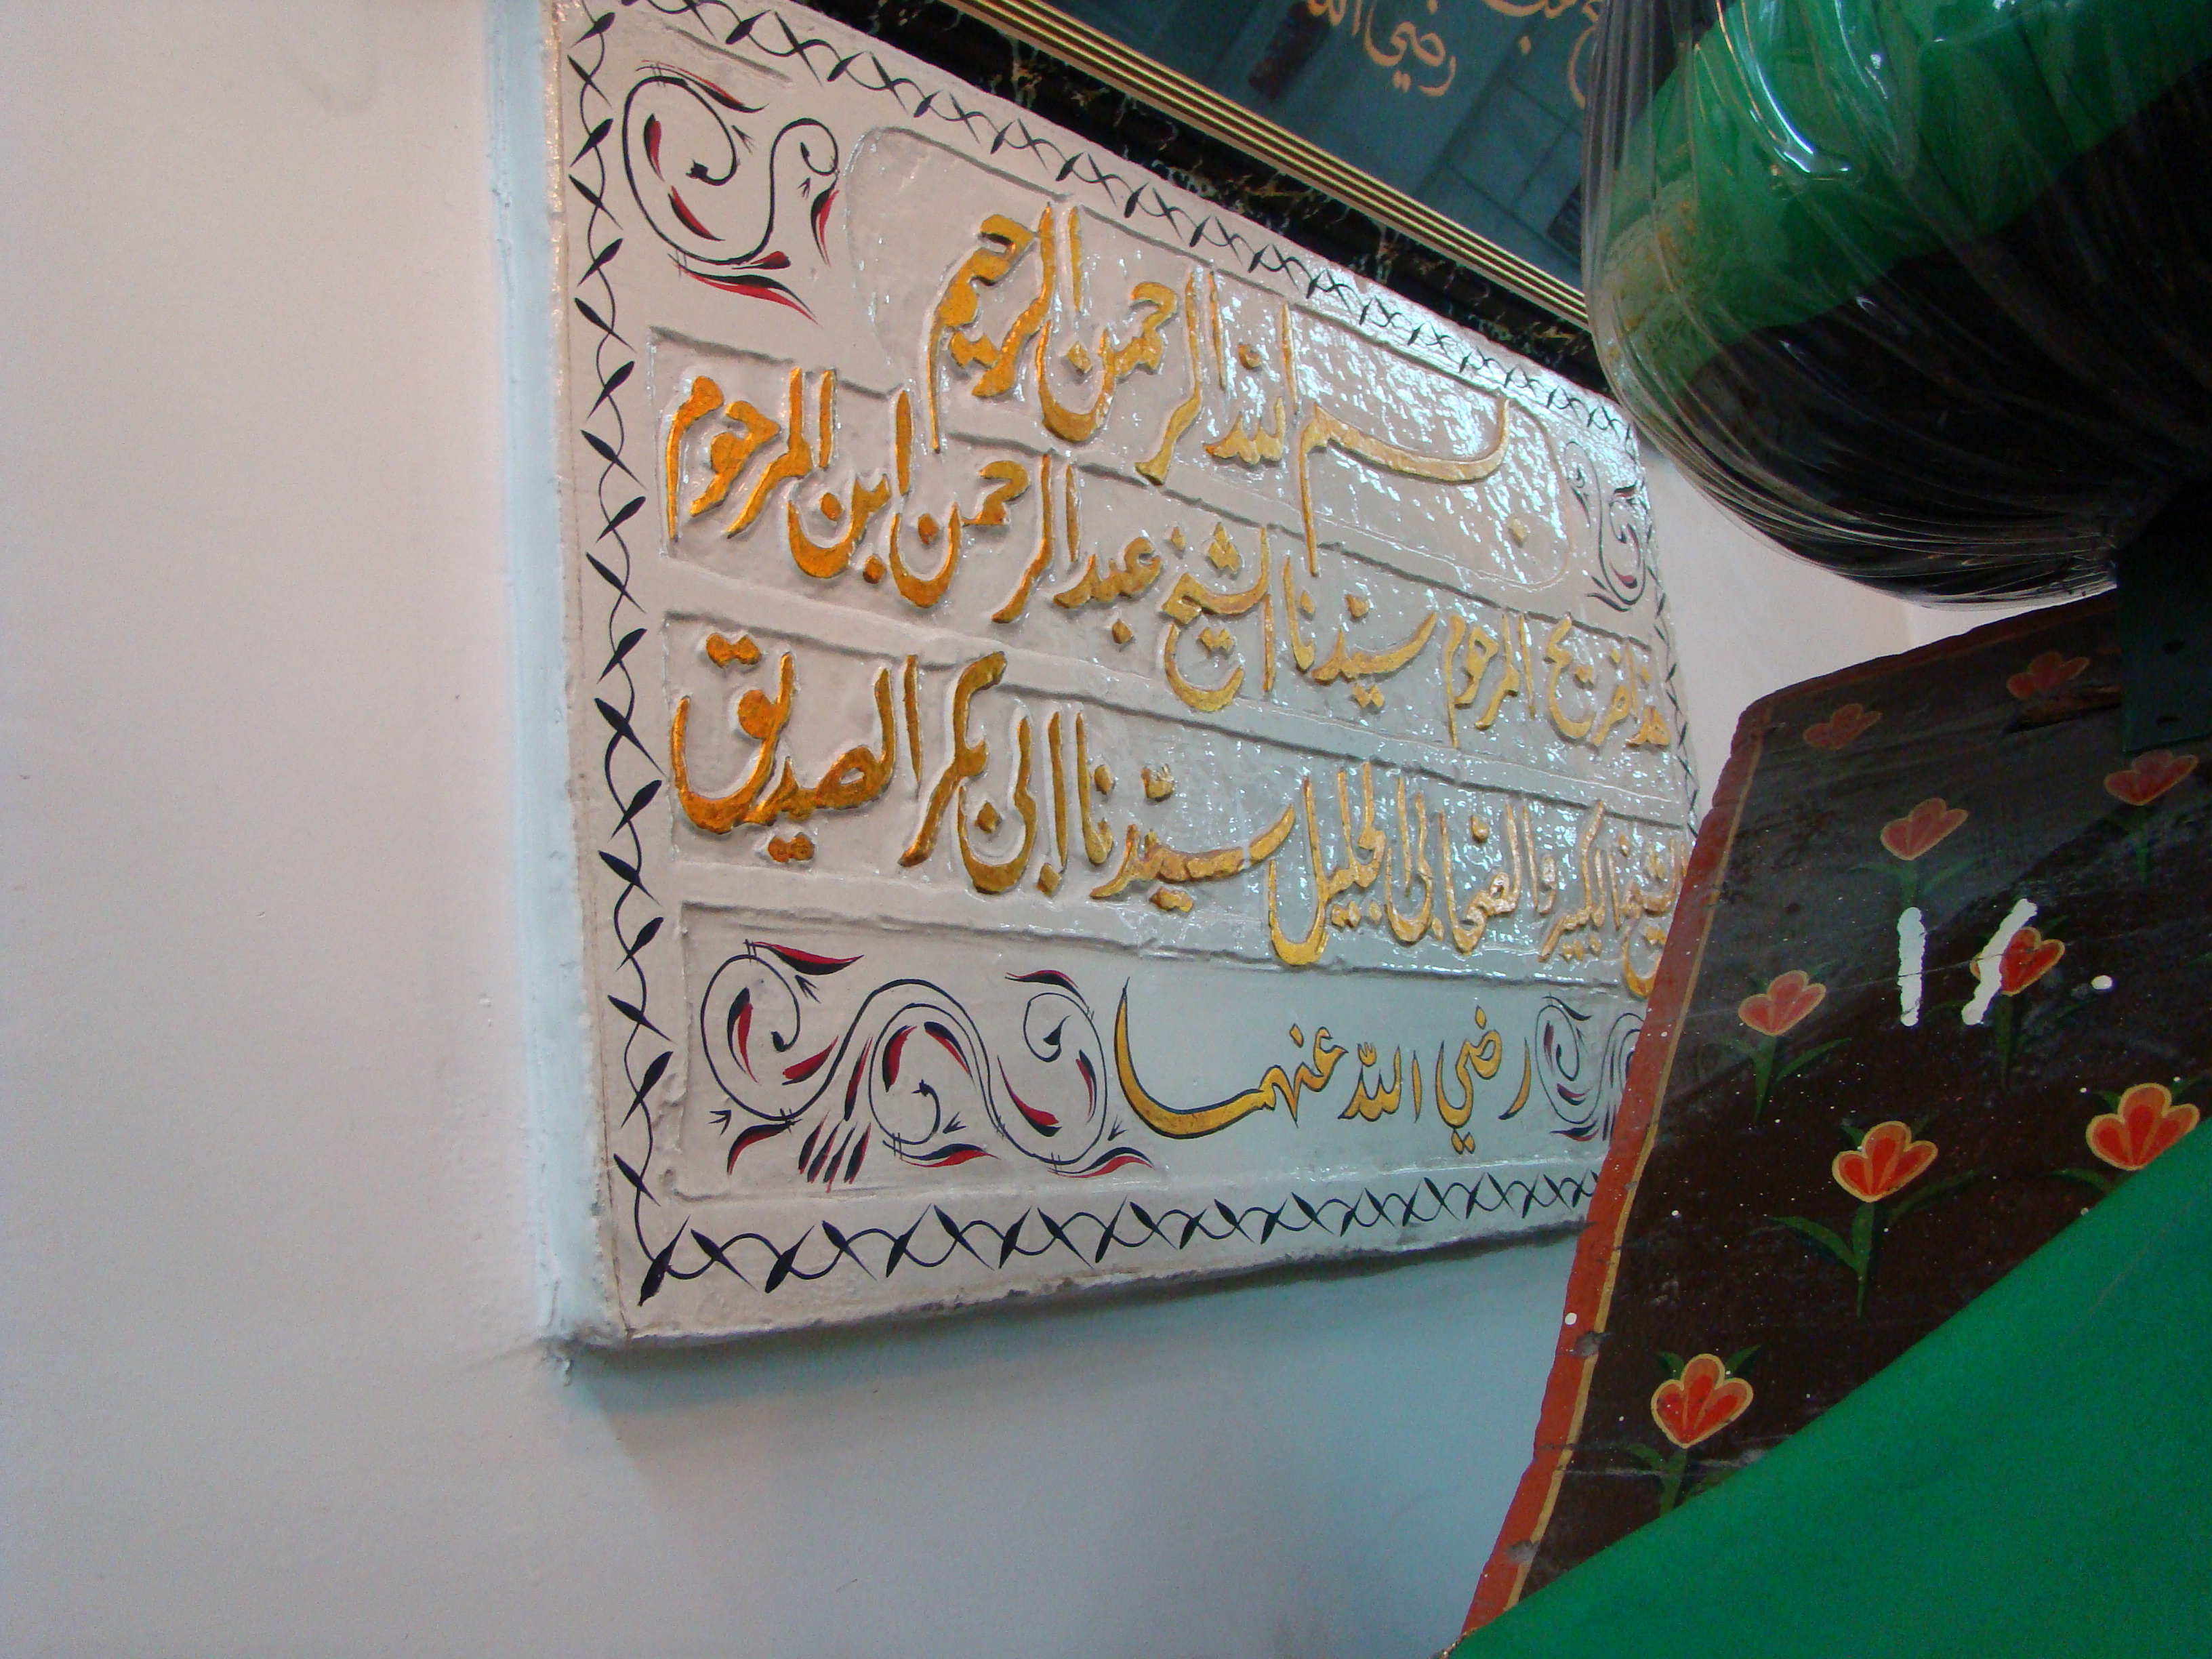 رضي الله
بسم الله الرحمن الرحيم
هذا ضريح المرحوم سيدنا الشيخ عبد الرحمن ابن المرحوم
الشيخ الكبير والصحابى الجليل سيّدنا ابى بكر الصديق
رضي اللّه عنهما